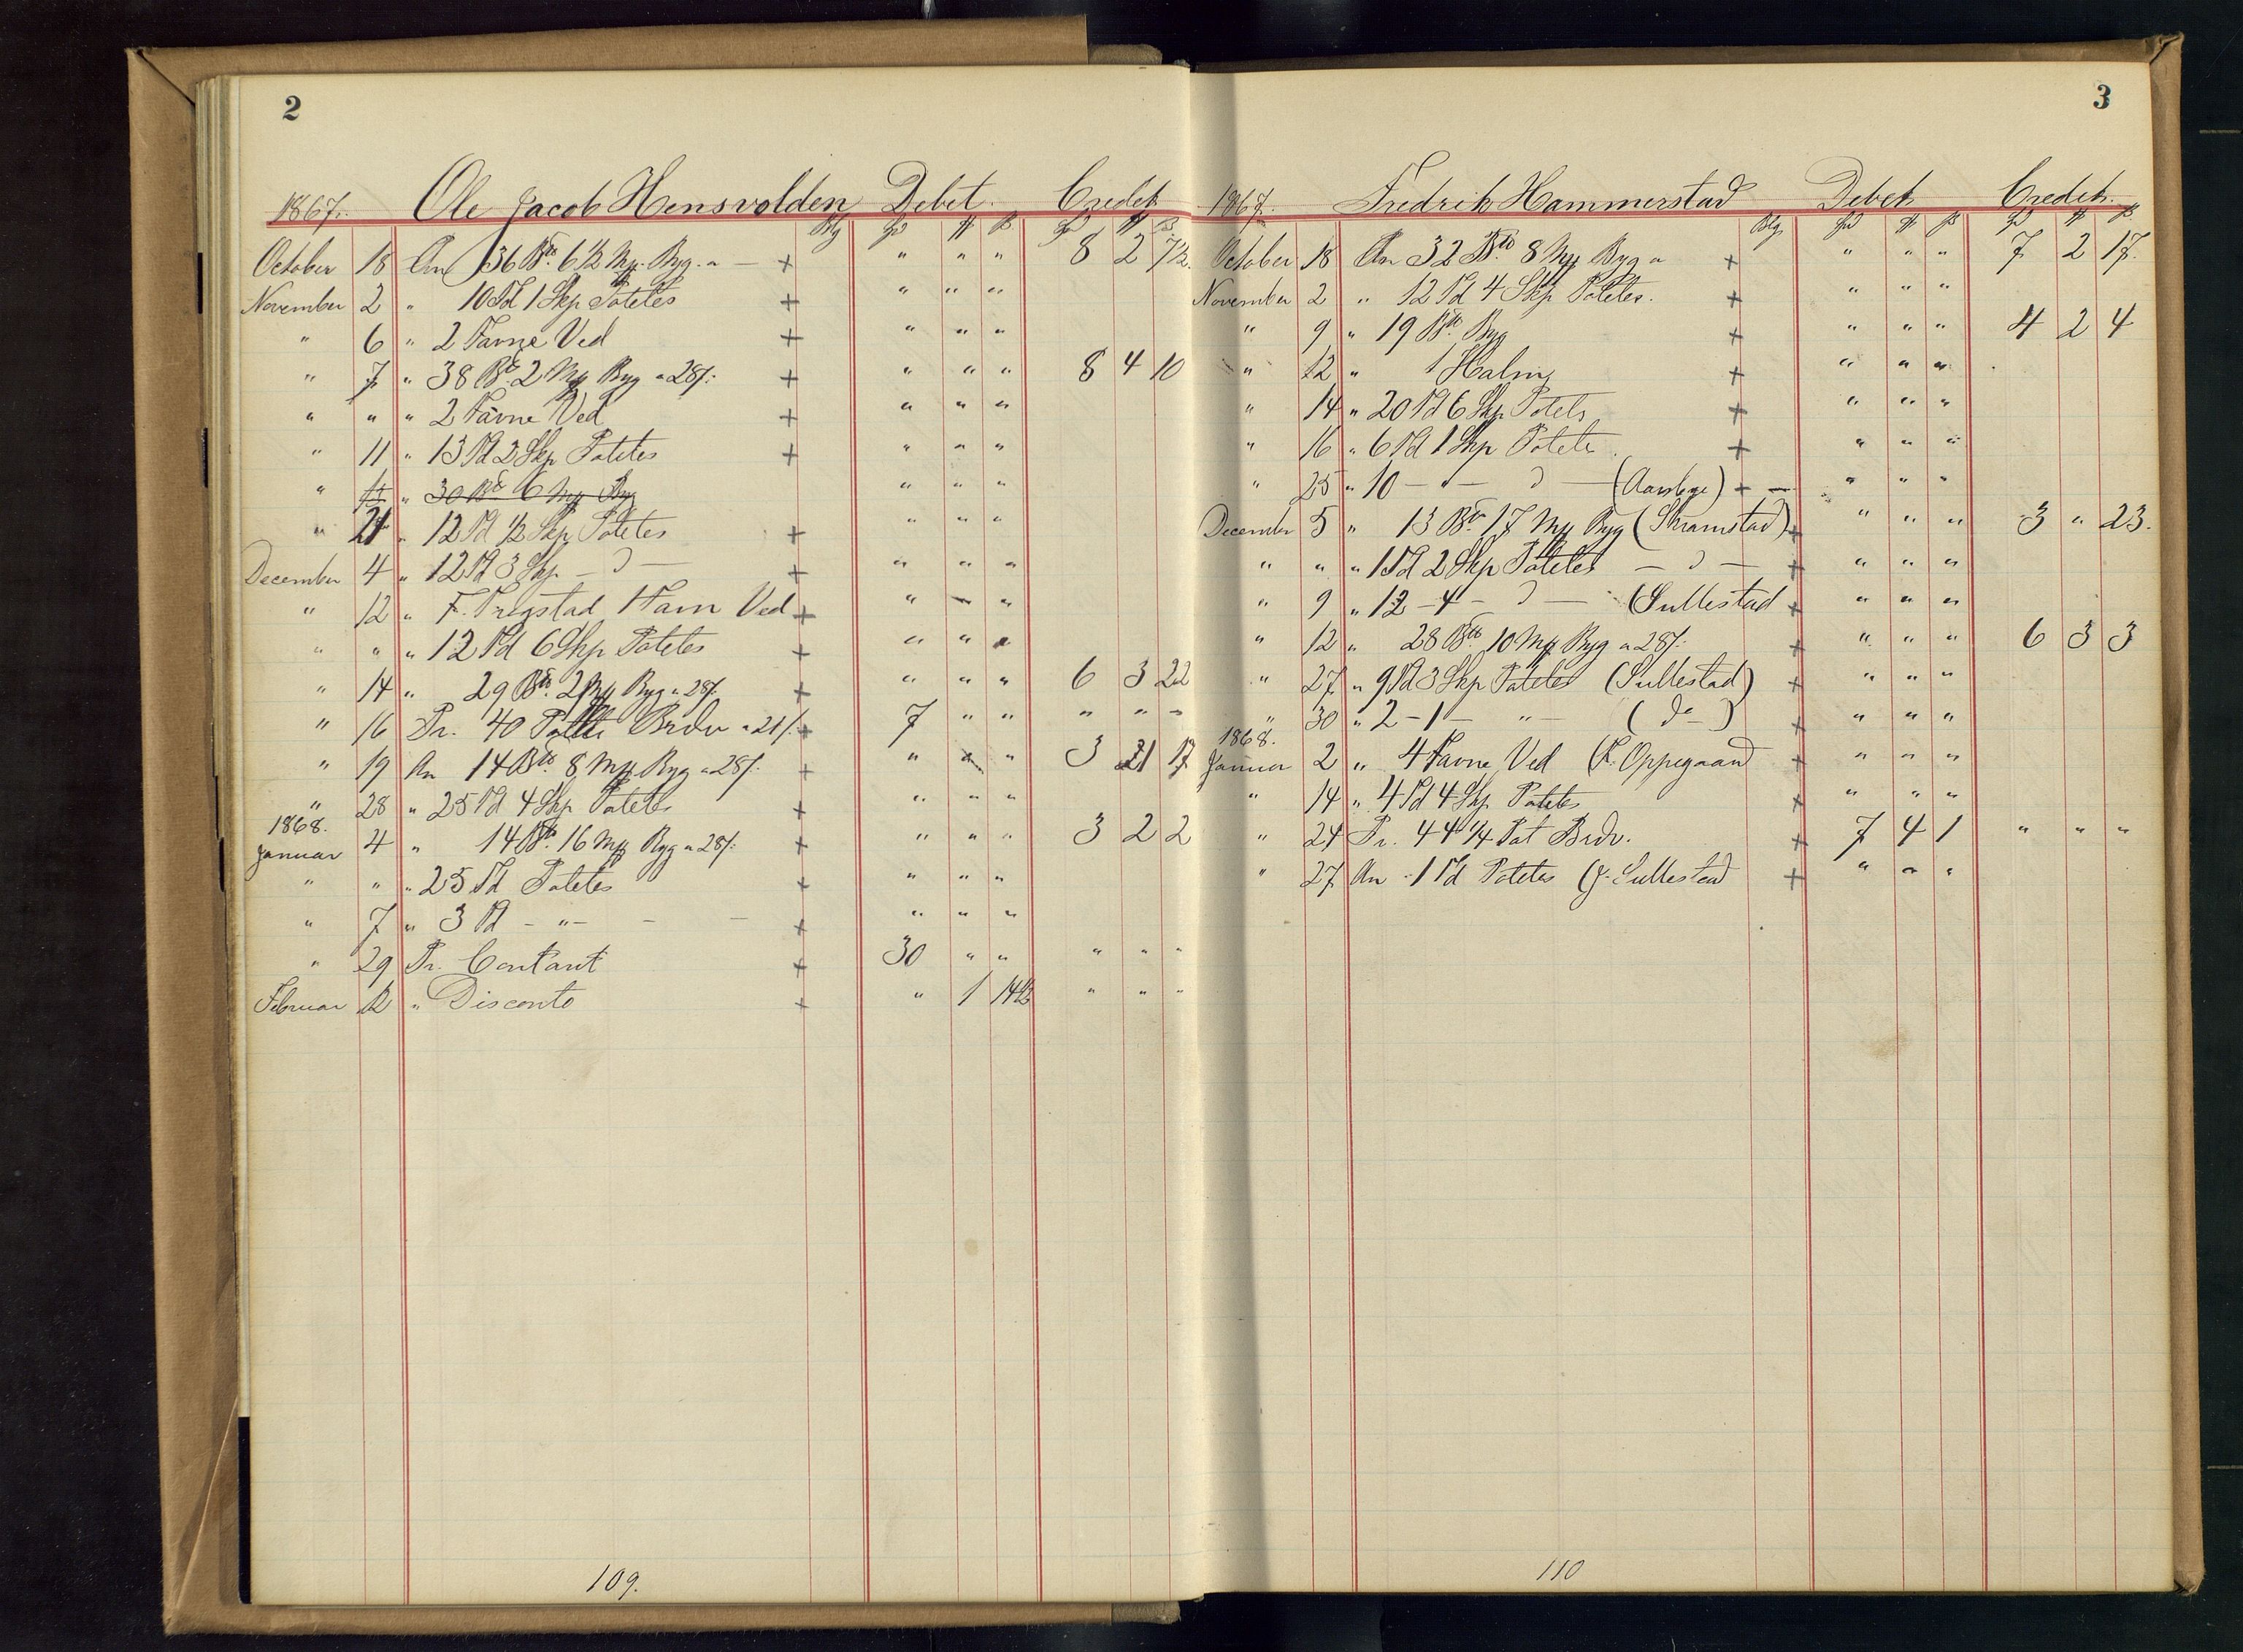 2
1867. Ole Jacob Hensvolden Debet. Credet
Blg Spd # β Spd # β
October 18 An 36 Bdd. 6½ Mrk Byg. a — + " " " 8 2 7½.
November 2 " 10 Td 1 Skp Potetes + " " "
" 6 " 2 Favne Ved + " " "
" 7 " 38 Bd 2 Mrk Byg a 28/: + " " " 8 4 10
" " " 2 Favne Ved + " " "
" 11 " 13 Td 2 Skp Potetes + " " "
" " 30 Bd 6 Mrk Byg " " "
" 21 " 12 Td ½ Skp Potetes + " " "
December 4 " 12 Td 3 Skp — " — + " " "
" 12 " F. Trogstad 1 Favn Ved + " " "
" " " 12 Td 6 Skp Potetes + " " "
" 14 " 29 Bdd. 2 Mrk Byg a 28/. + " " " 6 3 22
" 16 Pr. 40 Potter Brdv a 21/. + 7 " " " " "
" 19 An 14 Bdd. 8 Mrk Byg a 28/. + " " " 3 1 17
" 28 " 25 Td 4 Skp Potetes + " " "
1868.
Januar 4 " 14 Bdd. 16 Mrk Byg a 28/. + " " " 3 2 2
" " " 25 Td Potetes + " " "
" 7 " 3 Td — " — — — + " " "
" 29 Pr. Contant + 30 " " " " "
Februar 12 " Disconto + " 1 14½ " " "
109.
3
1867. Fredrik Hammerstad Debet Credet.
Blg. Spd # β Spd # β
October 18 An 32 Bdd. 8 Mrk Byg a + " " " 7 2 17.
November 2 " 12 Td 4 Skp Potetes. + " " "
" 9 " 19 Bdd. Byg + " " " 4 2 4
" 12 " Halm + " " "
" 14 " 20 Td 6 Skp Potets + " " "
" 16 " 6 Td 1 Skp Potets + " " "
" 25 " 10 — " — " — (Aanberge) + — " " "
December 5 " 13 Bdd. 17 Mrk Byg (Skramstad) + " " " 3 " 23.
" " " 1 Td 2 Skp Potetes — " — + " " "
" 9 " 12 – 4 – " — (Sullestad + " " "
" 12 " 28 Bdd. 10 Mrk Byg a 28/. + " " " 6 3 3
" 27 " 9 Td 3 Skp Potetes (Sullestad) + " " "
" 30 " 2 – 1 – " — ( do ) + " " "
1868.
Januar 2 " 4 Favne Ved (K. Oppegaard + " " "
" 14 " 4 Td 4 Skp Potetes + " " "
" 24 Pr. 44 ¼ Pot Brdv. + 7 4 1 " " "
" 27 An 1 Td Potetes (J. Sullestad + " " "
110